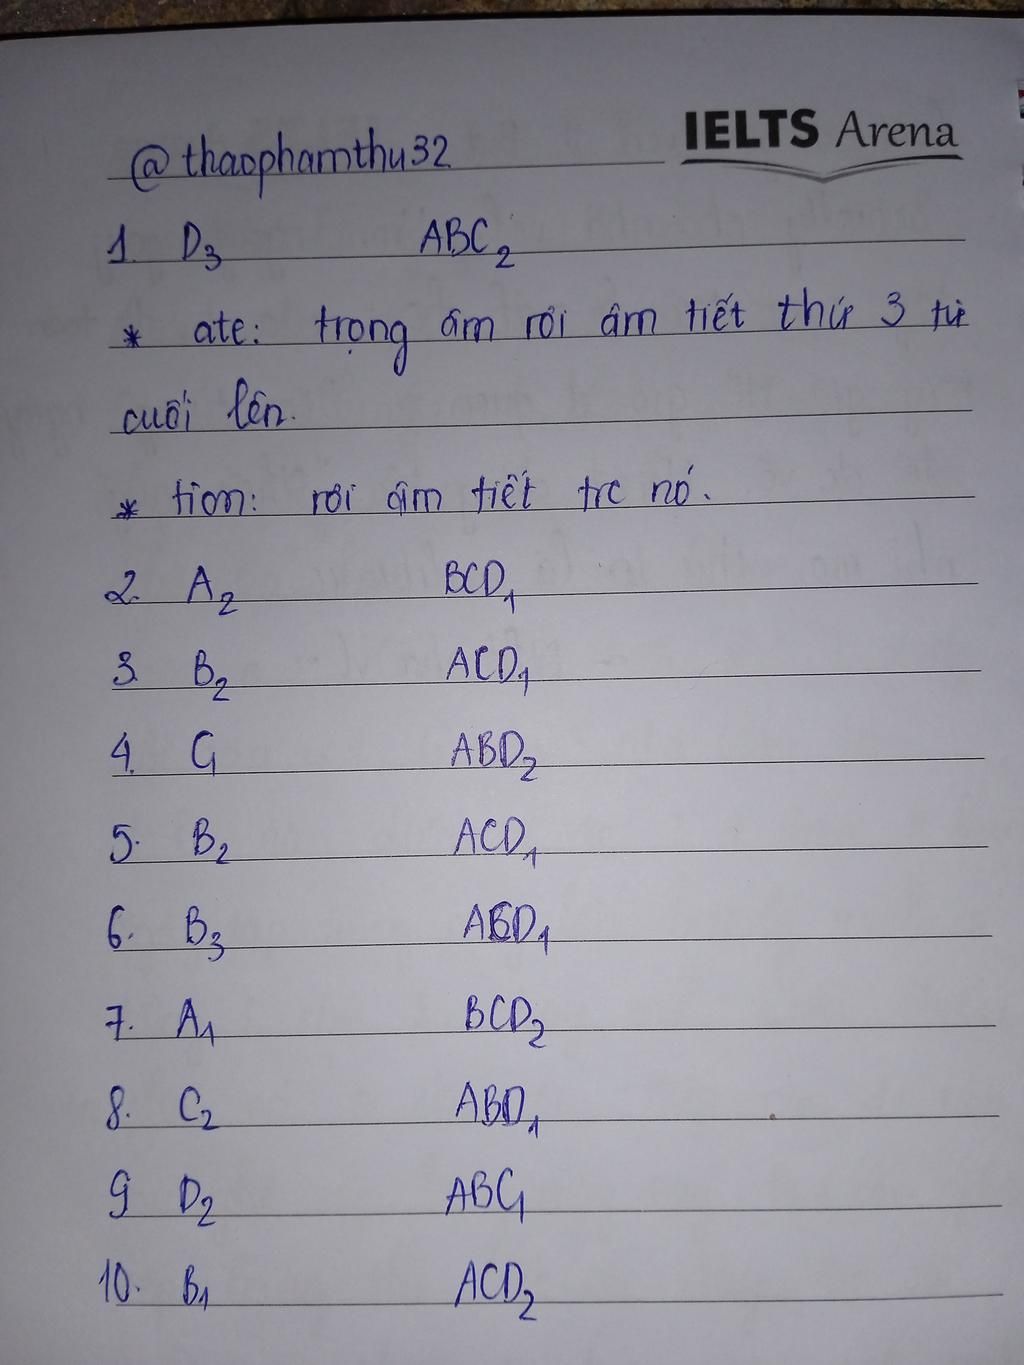 IELTS Arena
@thaophamthu32
1. D3 ABC2
* ate: trọng âm rơi âm tiết thứ 3 từ
cuối lên.
* tion: rơi âm tiết trc nó.
2. A2 BCD1
3. B2 ACD1
4. C1 ABD2
5. B2 ACD1
6. B3 ACD1
7. A1 BCD2
8. C2 ABD1
9 D2 ABC1
10. B1 ACD2